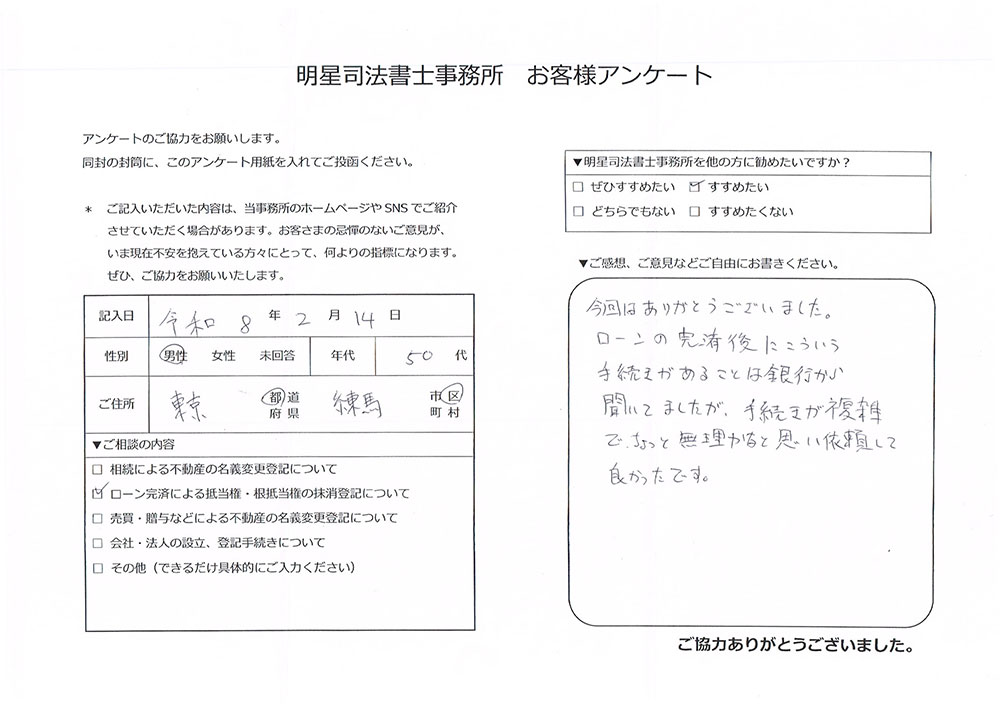 明星司法書士事務所　お客様アンケート
アンケートのご協力をお願いします。
同封の封筒に、このアンケート用紙を入れてご投函ください。
＊　ご記入いただいた内容は、当事務所のホームページやSNSでご紹介
させていただく場合があります。お客さまの忌憚のないご意見が、
いま現在不安を抱えている方々にとって、何よりの指標になります。
ぜひ、ご協力をお願いいたします。
記入日　令和 8 年 2 月 14 日
性別　男性　女性　未回答　年代　50 代
ご住所　東京　都道府県　練馬　市区町村
▼ご相談の内容
□ 相続による不動産の名義変更登記について
☑ ローン完済による抵当権・根抵当権の抹消登記について
□ 売買・贈与などによる不動産の名義変更登記について
□ 会社・法人の設立、登記手続きについて
□ その他（できるだけ具体的にご入力ください）
▼明星司法書士事務所を他の方に勧めたいですか？
□ ぜひすすめたい　☑ すすめたい
□ どちらでもない　□ すすめたくない
▼ご感想、ご意見などご自由にお書きください。
今回はありがとうございました。
ローンの完済後にこういう
手続きがあることは銀行から
聞いてましたが、手続きが複雑
で、ちょっと無理かなと思い依頼して
良かったです。
ご協力ありがとうございました。